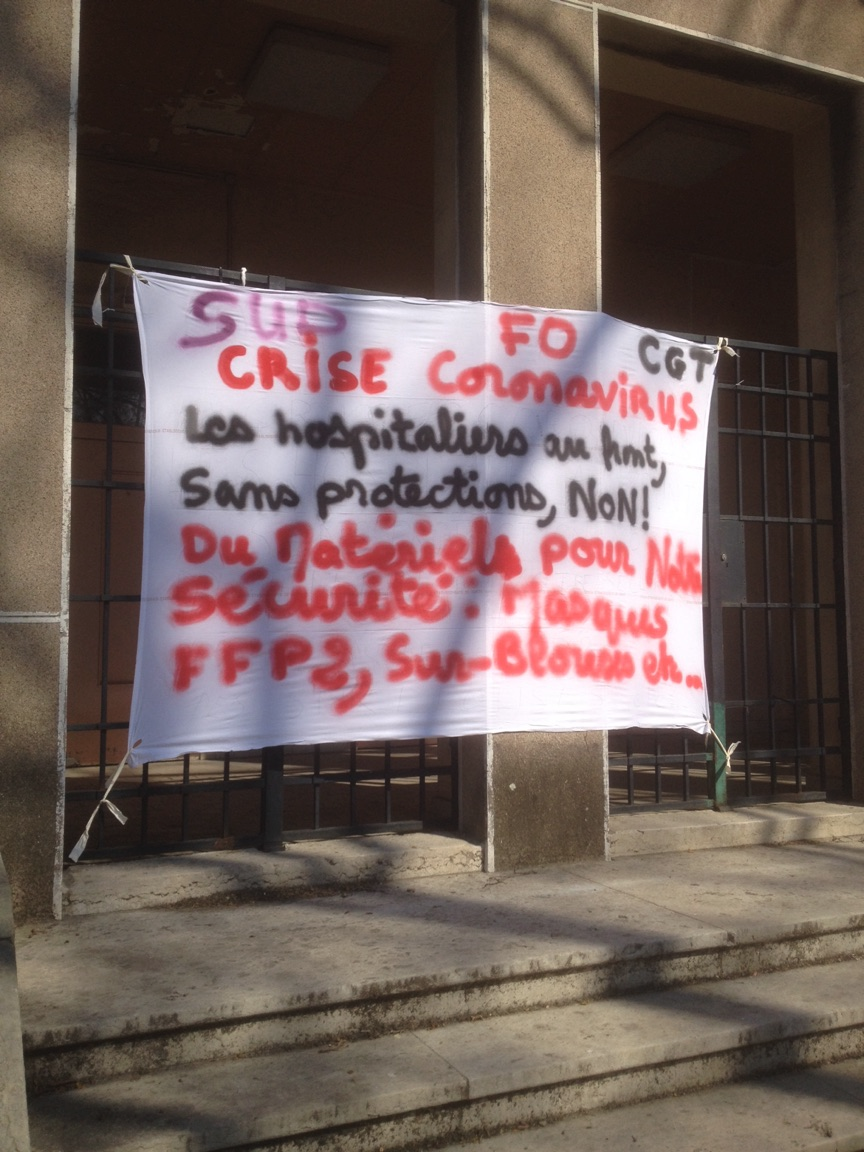 SUD FO CGT
CRISE Coronavirus
Les hospitaliers au front,
Sans protections, NON!
Du Matériels pour Notre
Sécurité : Masques
FFP2, Sur-Blouses etc...